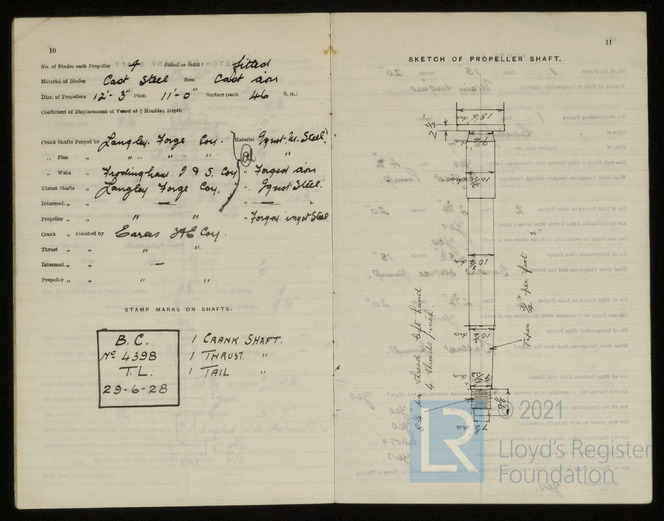 10
No. of Blades each Propeller 4 Fitted or Solid? fitted
Material of Blades Cast Steel Boss Cast iron
Diar. of Propellers 12'-3" Pitch 11'-0" Surface (each 46 S. ft.)
Coefficient of Displacement of Vessel at ½ Moulded Depth
Crank Shafts Forged by Langley Forge Coy. Material Ingot M. Steel.
„ Pins „ „ „ „ „
„ Webs „ Frodingham I & S. Coy „ Forged iron
Thrust Shafts „ Langley Forge Coy. „ Ingot Steel.
Intermed. „ „ — „ —
Propeller „ „ „ „ „ Forged ingot Steel
Crank „ Finished by Earles Coy.
Thrust „ „ „ „
Intermed. „ „ —
Propeller „ „ „ „
STAMP MARKS ON SHAFTS.
B.C.
No 4398
T.L.
29-6-28
1 CRANK SHAFT.
1 THRUST "
1 TAIL "
11
SKETCH OF PROPELLER SHAFT.
Taper ¾" per foot
thread left hand
4 threads p inch
© 2021
LR
Lloyd's Register
Foundation